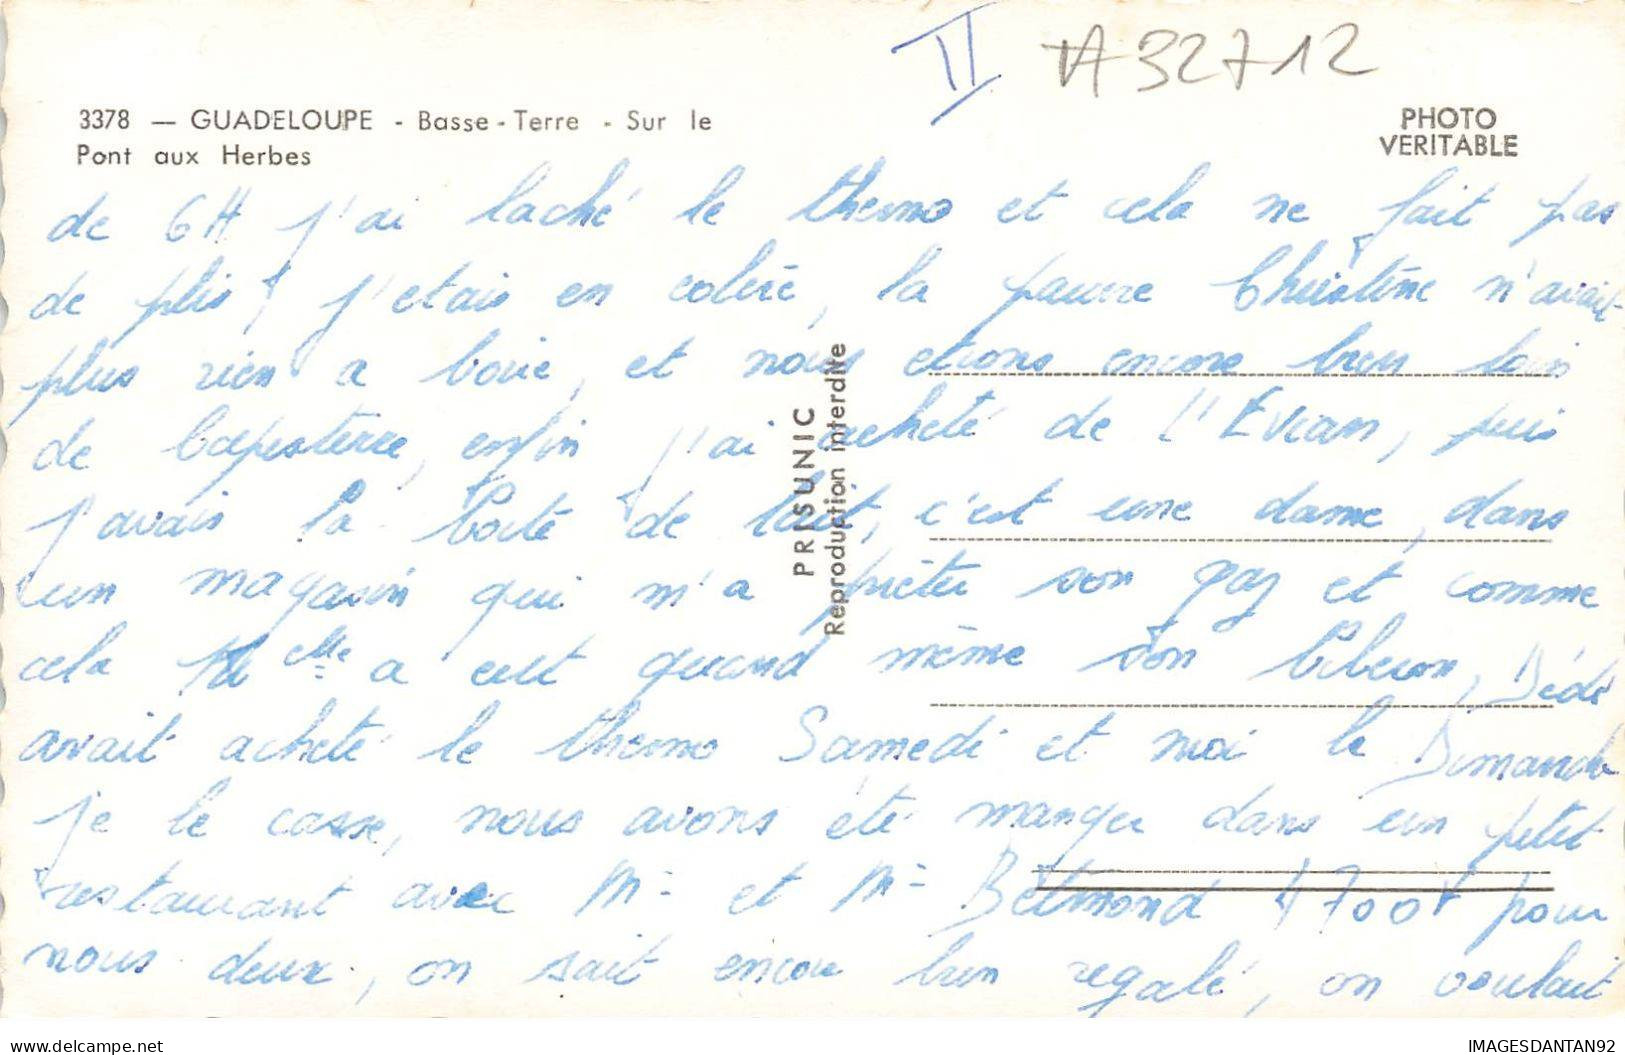 II A32712
3378 — GUADELOUPE - Basse-Terre - Sur le
Pont aux Herbes
PHOTO
VERITABLE
de 6H j'ai laché le thermo et cela ne fait pas
de plis j'etais en colère, la pauvre Christine n'avait
plus rien a boire, et nous etions encore bien loin
de Capesterre, enfin j'ai acheté de l'Evian, puis
j'avais la boite de lait, c'est une dame, dans
un magasin qui m'a prêter son gaz et comme
cela Melle a eut quand même son biberon, Dédé
avait acheté le thermo Samedi et moi le Dimanche
je le casse, nous avons été manger dans un petit
restaurant avec Mr et Me Belmond 1700F pour
nous deux, on sait encore bien regalé, on voulait
PRISUNIC
Reproduction interdite
www.delcampe.net
IMAGESDANTAN92